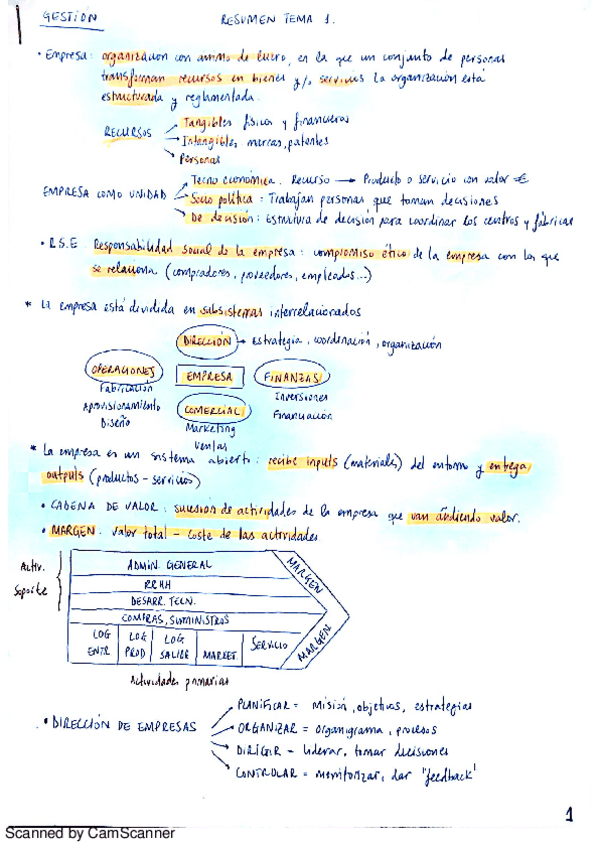 GESTIÓN RESUMEN TEMA 1.
• Empresa: organización con ánimo de lucro, en la que un conjunto de personas
transforman recursos en bienes y/o servicios. La organización está
estructurada y reglamentada.
RECURSOS
Tangibles físicos y financieros
Intangibles marcas, patentes
Personas
EMPRESA COMO UNIDAD
Tecno económica. Recurso → Producto o servicio con valor €
Socio política: Trabajan personas que toman decisiones
De decisión: Estructura de decisión para coordinar los centros y fábricas
• R.S.E Responsabilidad social de la empresa: compromiso ético de la empresa con los que
se relaciona (compradores, proveedores, empleados...)
* La empresa está dividida en subsistemas interrelacionados
DIRECCIÓN → estrategia, coordinación, organización
OPERACIONES EMPRESA FINANZAS
Fabricación
Aprovisionamiento
Diseño
COMERCIAL
Marketing
Ventas
Inversiones
Financiación
* La empresa es un sistema abierto: recibe inputs (materiales) del entorno y entrega
outputs (productos - servicios)
• CADENA DE VALOR: sucesión de actividades de la empresa que van añdiendo valor.
• MARGEN. Valor total - coste de las actividades
Activ.
Soporte
ADMIN. GENERAL
RRHH
DESARR. TECN.
COMPRAS, SUMINISTROS
LOG ENTR.
LOG PROD
LOG SALIDR
MARKET.
SERVICIO
MARGEN
MARGEN
Actividades primarias
• DIRECCIÓN DE EMPRESAS
PLANIFICAR = Misión, objetivos, estrategias
ORGANIZAR = organigrama, procesos
DIRIGIR - liderar, tomar decisiones
CONTROLAR = monitorizar, dar "feedback"
1
Scanned by CamScanner